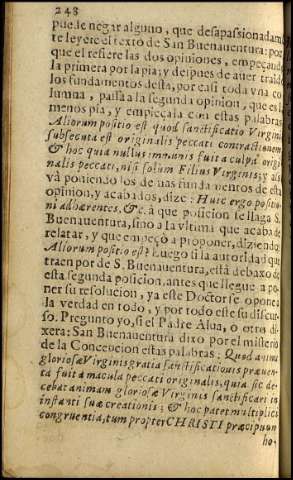 248
puede negar alguno, que desapassionadamẽ
te leyere el texto de San Buenauentura: por
que el refiere las dos opiniones, empeçando
la primera por la pia; y despues de auer traido
los fundamentos desta, por casi toda vna co
lumna, passa a la segunda opinion, que es la
menos pia, y empieçala con estas palabras
Aliorum positio est quod sanctificatio Virginis
subsecuta est originalis peccati contractionem
& hoc quia nullus immunis fuit a culpa origi
nalis peccati, nisi solum Filius Virginis; y assi
và poniendo los demas fundamentos desta
opinion, y acabados, dize: Huic ergo positio
ni adhærentes, &c. à que posicion se llega S.
Buenauentura, sino a la vltima que acaba de
relatar, y que empeçò a proponer, diziendo:
Aliorum positio est? Luego si la autoridad que
traen por de S. Buenauentura, està debaxo de
esta segunda posicion, antes que llegue a po-
ner su resolucion, ya este Doctor se opone a
la verdad en todo, y por todo este su discur-
so. Pregunto yo, si el Padre Alua, o otro di-
xera: San Buenauentura dixo por el misterio
de la Concepcion estas palabras: Quod anima
gloriosæ Virginis gratia sanctificationis præuen-
ta fuit à macula peccati originalis, quia sic de-
cebat animam gloriosæ Virginis sanctificari in
instanti suæ creationis; & hoc patet multiplici
congruentia, tum propter CHRISTI præcipuum
ho-